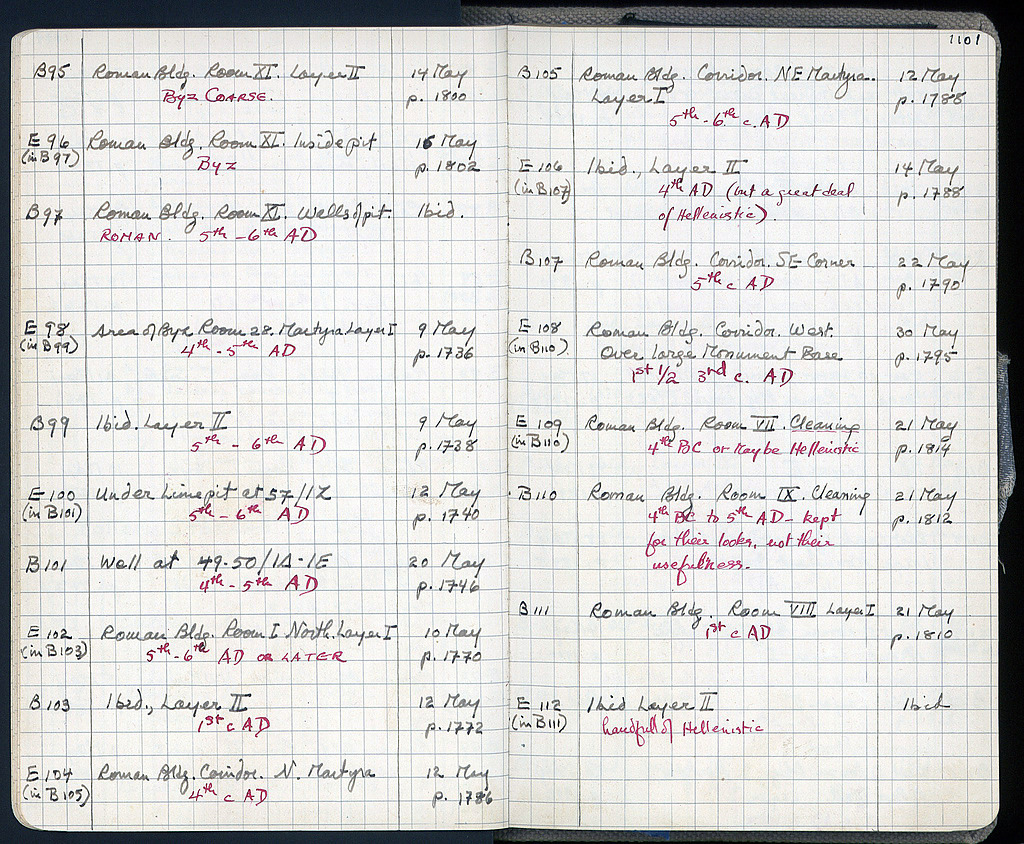 B95 Roman Bldg. Room XI. Layer II 14 May
Byz COARSE. p. 1800
E 96 Roman Bldg. Room XI. Inside pit 15 May
(in B97) Byz p. 1802
B97 Roman Bldg. Room XI. Walls of pit. Ibid.
ROMAN. 5th - 6th AD
E 98 Area of Byz Room 28. Martyra Layer I 9 May
(in B99) 4th - 5th AD p. 1736
B99 Ibid. Layer II 9 May
5th - 6th AD p. 1738
E 100 Under Limepit at 57/IZ 12 May
(in B101) 5th - 6th AD p. 1740
B101 Well at 49-50/IA-IE 20 May
4th - 5th AD p. 1746
E 102 Roman Bldg. Room I North. Layer I 10 May
(in B103) 5th - 6th AD OR LATER p. 1770
B103 Ibid., Layer II 12 May
1st c AD p. 1772
E 104 Roman Bldg. Corridor. N. Martyra 12 May
(in B105) 4th c AD p. 1786
1101
B105 Roman Bldg. Corridor. NE Martyra. 12 May
Layer I p. 1788
5th - 6th c. AD
E 106 Ibid., Layer II 14 May
(in B107) 4th AD (but a great deal p. 1788
of Hellenistic).
B107 Roman Bldg. Corridor. SE Corner 22 May
5th c AD p. 1790
E 108 Roman Bldg. Corridor. West. 30 May
(in B110) Over large Monument Base p. 1795
1st 1/2 3rd c. AD
E 109 Roman Bldg. Room VII. Cleaning 21 May
(in B110) 4th BC or Maybe Hellenistic p. 1814
B110 Roman Bldg. Room IX. Cleaning 21 May
4th BC to 5th AD - kept p. 1812
for their looks, not their
usefulness.
B111 Roman Bldg. Room VIII Layer I 21 May
1st c AD p. 1810
E 112 Ibid Layer II Ibid
(in B111) handfull of Hellenistic